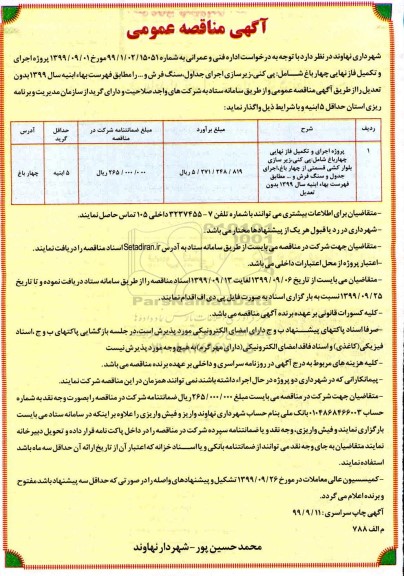 آگهی مناقصه عمومی
شهرداری نهاوند در نظر دارد با توجه به درخواست اداره فنی و عمرانی به شماره ۹۹/۱۰۲/۱۵۰۵۱ مورخ ۱۳۹۹/۰۹/۰۱ پروژه اجرای
و تکمیل فاز نهایی چهار باغ شامل: پی کنی، زیر سازی اجرای جداول، سنگ فرش و ... را مطابق فهرست بهاء ابنیه سال ۱۳۹۹ بدون
تعدیل را از طریق آگهی مناقصه عمومی و از طریق سامانه ستاد به شرکت های واجد صلاحیت و دارای گرید از سازمان مدیریت و برنامه
ریزی استان حداقل ۵ ابنیه و با شرایط ذیل واگذار نماید:
ردیف شرح مبلغ برآورد مبلغ ضمانتنامه شرکت در مناقصه حداقل گرید آدرس
۱ پروژه اجرای و تکمیل فاز نهایی
چهارباغ شامل:پی کنی،زیر سازی
بلوار کشی قسمتی از چهار باغ،اجرای
جدول و سنگ فرش و... مطابق
فهرست بهاء ابنیه سال ۱۳۹۹ بدون
تعدیل
۵/۲۷۱/۲۴۸/۸۱۹ ریال ۲۶۵/۰۰۰/۰۰۰ ریال ۵ ابنیه چهار باغ
-متقاضیان برای اطلاعات بیشتری می توانند با شماره تلفن ۷-۳۲۳۷۴۵۵ داخلی ۱۰۵ تماس حاصل نمایند.
-شهرداری در رد یا قبول هر یک از پیشنهادها مختار می باشد.
-متقاضیان جهت شرکت در مناقصه می بایست از طریق سامانه ستاد به آدرس Setadiran.ir اسناد مناقصه را دریافت نمایند.
-اعتبار پروژه از محل اعتبارات داخلی می باشد.
-متقاضیان می بایست از تاریخ ۱۳۹۹/۰۹/۰۶ لغایت ۱۳۹۹/۰۹/۱۳ اسناد مناقصه را از طریق سامانه ستاد دریافت نموده و تا تاریخ
۱۳۹۹/۰۹/۲۵ نسبت به بارگزاری اسناد به صورت فایل پی دی اف اقدام نمایند.
-کلیه کسورات قانونی بر عهده برنده آگهی مناقصه می باشد.
-صرفا اسناد پاکتهای پیشنهاد ب و ج دارای امضای الکترونیکی مورد پذیرش است،در جلسه بازگشایی پاکتهای ب و ج ،اسناد
فیزیکی(کاغذی) و اسناد فاقد امضای الکترونیکی(دارای مهر گرم) به هیچ وجه مورد پذیرش نیست
-کلیه هزینه های مربوط به درج آگهی در روزنامه سراسری و داخلی بر عهده برنده مناقصه می باشد.
-پیمانکارانی که در شهرداری دو پروژه در حال اجراء داشته باشند نمی توانند همزمان در این مناقصه شرکت نمایند.
-متقاضیان جهت شرکت در مناقصه می بایست مبلغ ۲۶۵/۰۰۰/۰۰۰ ریال ضمانتنامه شرکت در مناقصه را بصورت وجه نقد به شماره
حساب ۰۱۰۴۸۶۸۴۶۶۰۰۳ بانک ملی بنام حساب شهرداری نهاوند واریز و فیش واریزی را علاوه بر اینکه در سامانه ستاد می بایست
بارگزاری نمایند و فیش واریزی، وجه نقد و یا ضمانتنامه سپرده شرکت در مناقصه را در داخل پاکت نامه قرار داده و تحویل دبیرخانه
نمایند متقاضیان به جای وجه نقد می توانند از ضمانتنامه بانکی و یا اسناد خزانه که اعتبار آن از تاریخ ارائه آن حداقل سه ماه باشد
استفاده نمایند.
-کمیسیون عالی معاملات در مورخ ۱۳۹۹/۰۹/۲۶ تشکیل و پیشنهادهای واصله را در صورتی که حداقل سه پیشنهاد باشد مفتوح
و برنده اعلام می گردد.
آگهی چاپ سراسری: ۹۹/۹/۱۱
م الف ۷۸۸
محمد حسین پور - شهردار نهاوند